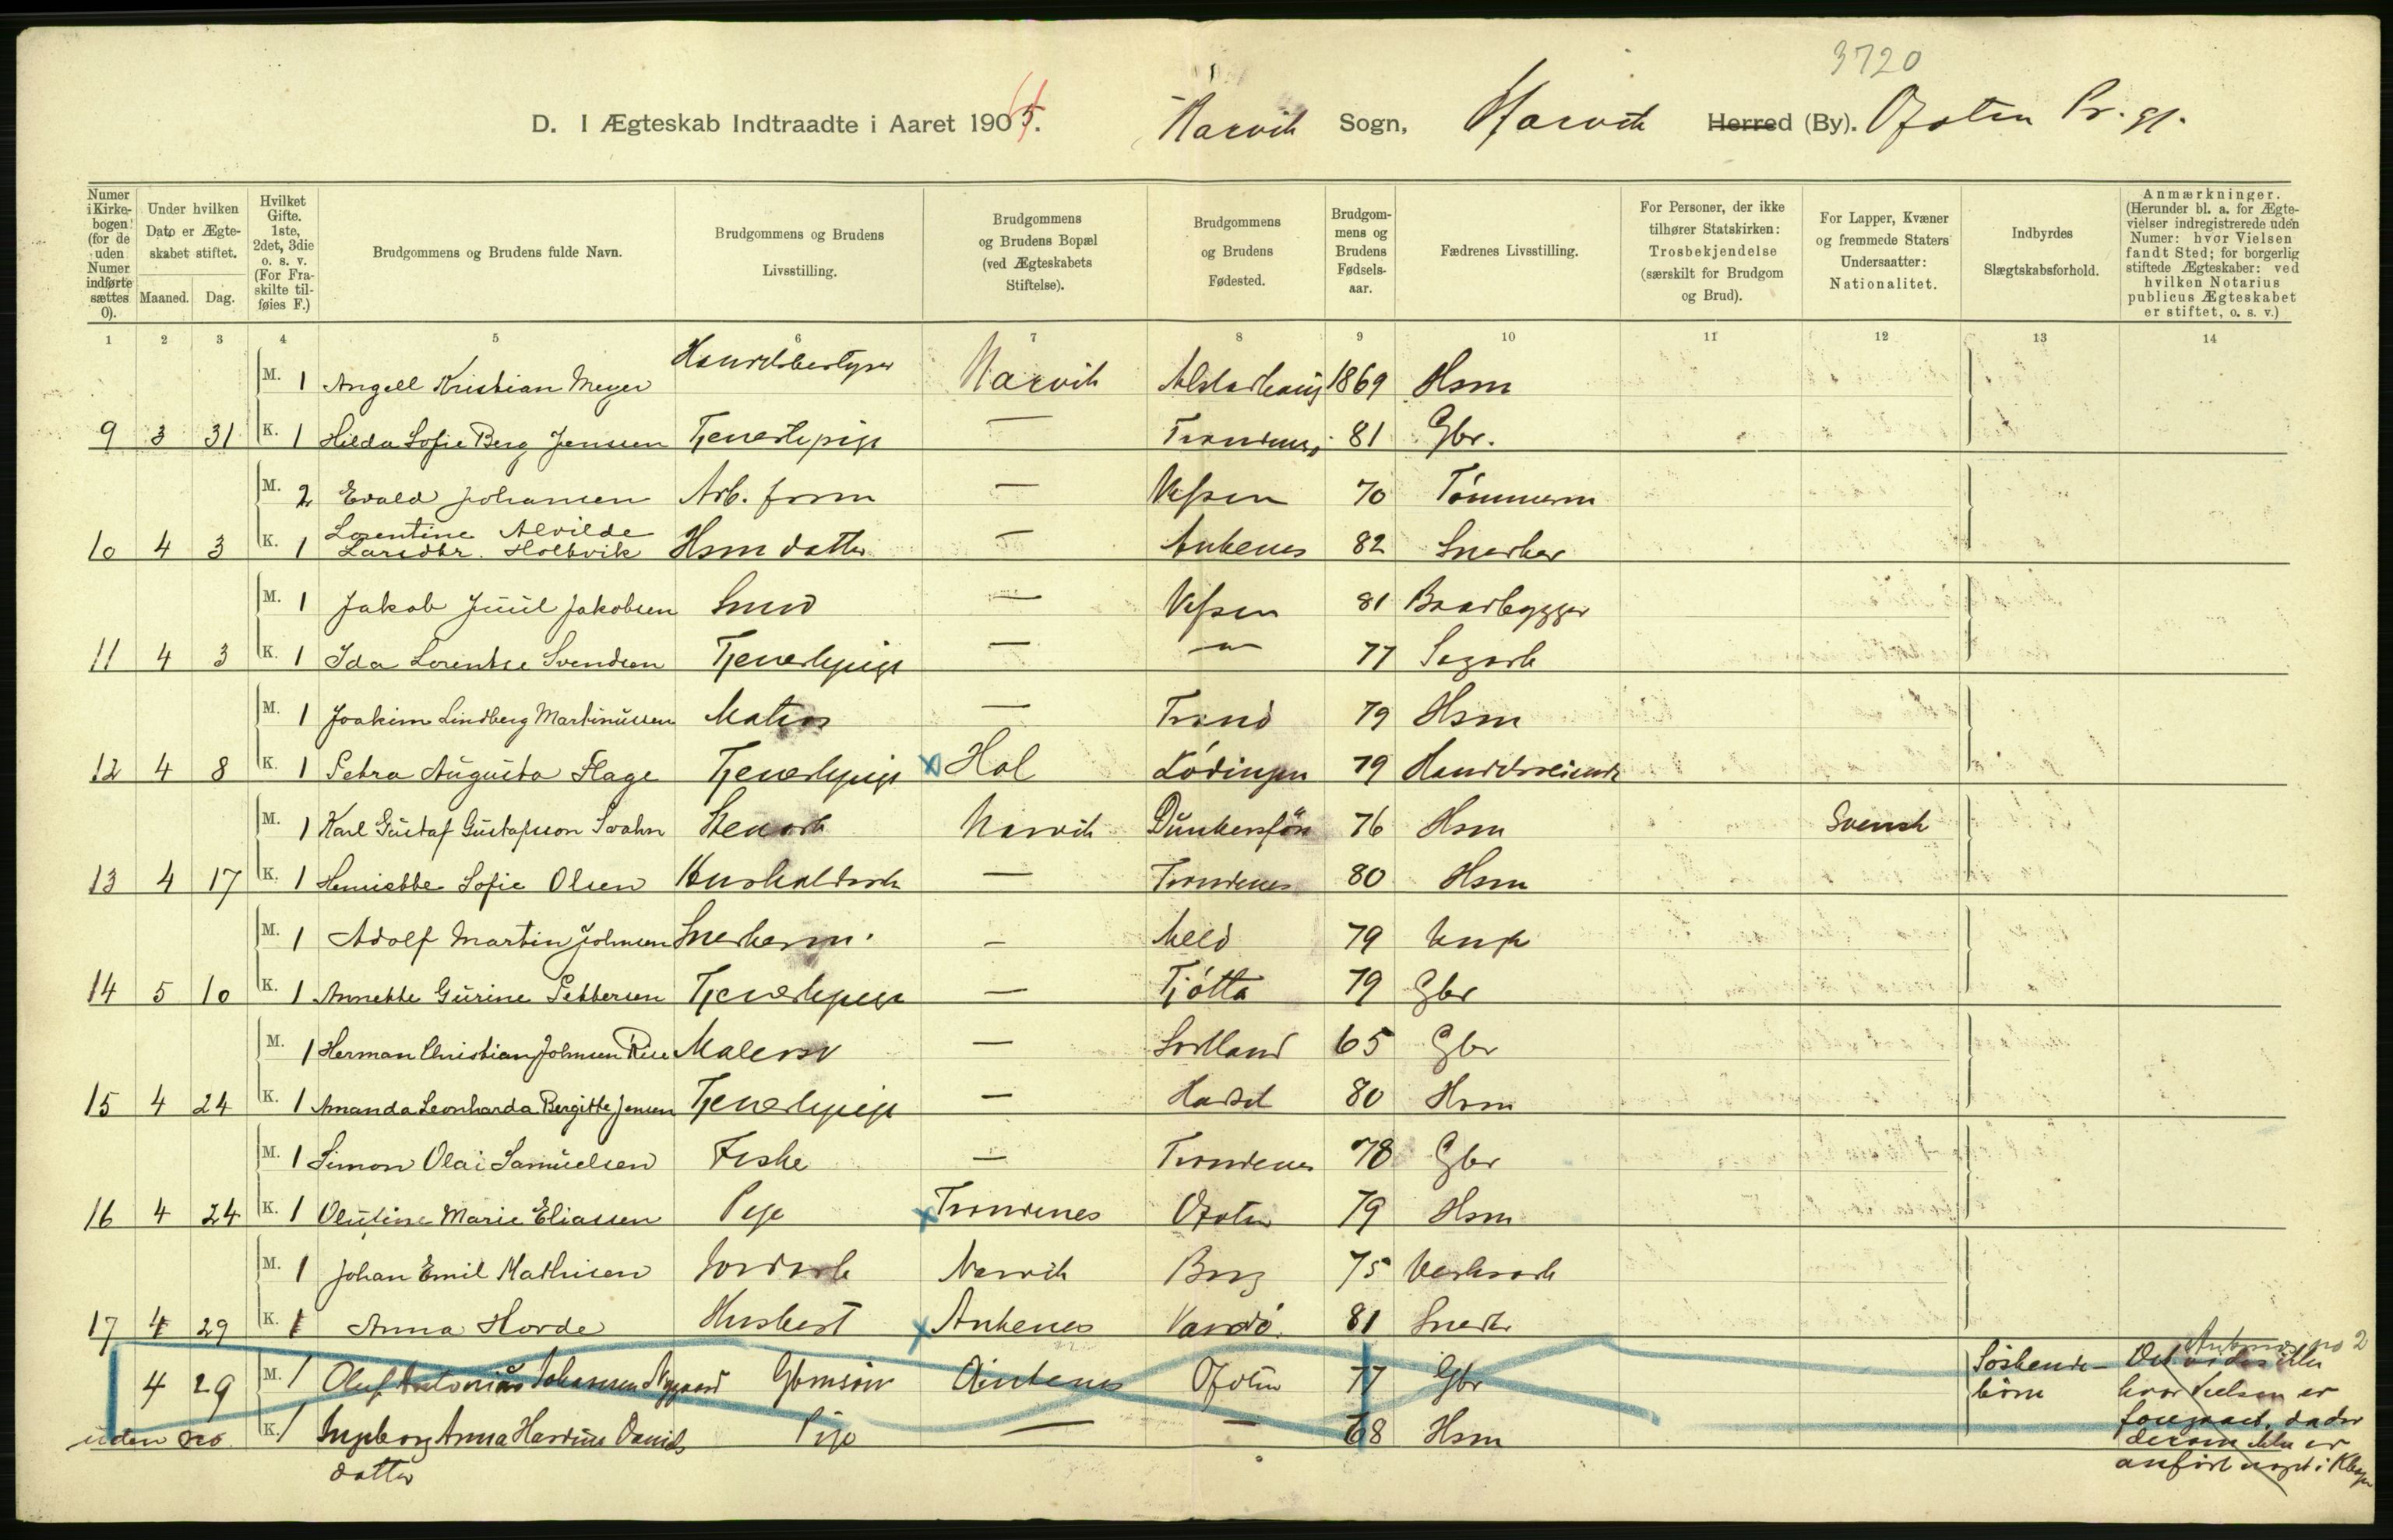 3720
D. I Ægteskab Indtraadte i Aaret 1905. Narvik Sogn, Narvik Herred (By). Ofoten Pr. gj.
Numer i Kirkebogen (for de uden Numer indførte sættes 0).
Under hvilken Dato er Ægteskabet stiftet.
Maaned. Dag.
Hvilket Gifte. 1ste, 2det, 3die o. s. v. (For Fraskilte tilføies F.)
Brudgommens og Brudens fulde Navn.
Brudgommens og Brudens Livsstilling.
Brudgommens og Brudens Bopæl (ved Ægteskabets Stiftelse).
Brudgommens og Brudens Fødested.
Brudgommens og Brudens Fødselsaar.
Fædrenes Livsstilling.
For Personer, der ikke tilhører Statskirken: Trosbekjendelse (særskilt for Brudgom og Brud).
For Lapper, Kvæner og fremmede Staters Undersaatter: Nationalitet.
Indbyrdes Slægtskabsforhold.
Anmærkninger. (Herunder bl. a. for Ægtevielser indregistrerede uden Numer: hvor Vielsen fandt Sted; for borgerlig stiftede Ægteskaber: ved hvilken Notarius publicus Ægteskabet er stiftet, o. s. v.)
1 2 3 4 5 6 7 8 9 10 11 12 13 14
M. 1 Angell Kristian Meyer Handelsbestyrer Narvik Alstadhaug 1869 Hsm
9 3 31 K. 1 Hilda Sofie Berg Jenssen Tjenestepige — Trondenes 81 Gbr.
M. 2 Evald Johansen Arb. form — Vefsen 70 Tømmerm
10 4 3 K. 1 Lorentine Alvilde Larsdtr. Holtvik Hsm datter — Ankenes 82 Snedker
M. 1 Jakob Juul Jakobsen Smed — Vefsen 81 Baadbygger
11 4 3 K. 1 Ida Lorentse Svendsen Tjenestepige — — 77 Sagarb
M. 1 Joakim Lindberg Martinussen Matros — Trond 79 Hsm
12 4 8 K. 1 Petra Augusta Hage Tjenestepige x Hol Lødingen 79 Handelsreisende
M. 1 Karl Gustaf Gustafsson Svahn Stenarb Narvik 76 Hsm Svensk
13 4 17 K. 1 Henriette Sofie Olsen Husholdersk — Trondenes 80 Hsm
M. 1 Adolf Martin Johnsen Snedkerm. — 79
14 5 10 K. 1 Annette Gurine Pettersen Tjenestepige — Tjøtta 79 Gbr
M. 1 Herman Christian Johnsen Rise Malersv — Sortland 65 Gbr
15 4 24 K. 1 Amanda Leonharda Bergitte Jensen Tjenestepige — Hadsel 80 Hsm
M. 1 Simon Olai Samuelsen Fisker — Trondenes 78 Gbr
16 4 24 K. 1 Olutine Marie Eliassen Pige x Trondenes Ofoten 79 Hsm
M. 1 Johan Emil Mathisen Jordarb Narvik Borg 75 Verksarb
17 4 29 K. 1 Anna Horde Husbest x Ankenes Vardø. 81 Snedk
Ankenes no 2
4 29 M. 1 Oluf Antonius Johansen Nygaard Gbmsøn Ankenes Ofoten 77 Gbr Søskendebørn Det vides ikke
hvor Vielsen er
uden no. K. 1 Ingeborg Anna Hardine Daniels — — 68 Hsm foregaaet, da der
datter Pige derom ikke er
anført noget i Kbogen